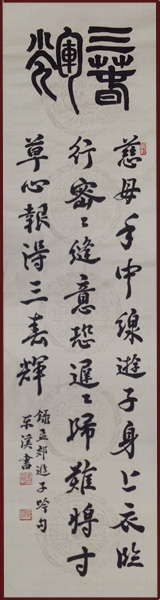 三春輝
慈母手中線遊子身上衣臨
行密〻縫意恐遲〻歸難將寸
草心報得三春輝
錄孟郊遊子吟句
東溪書